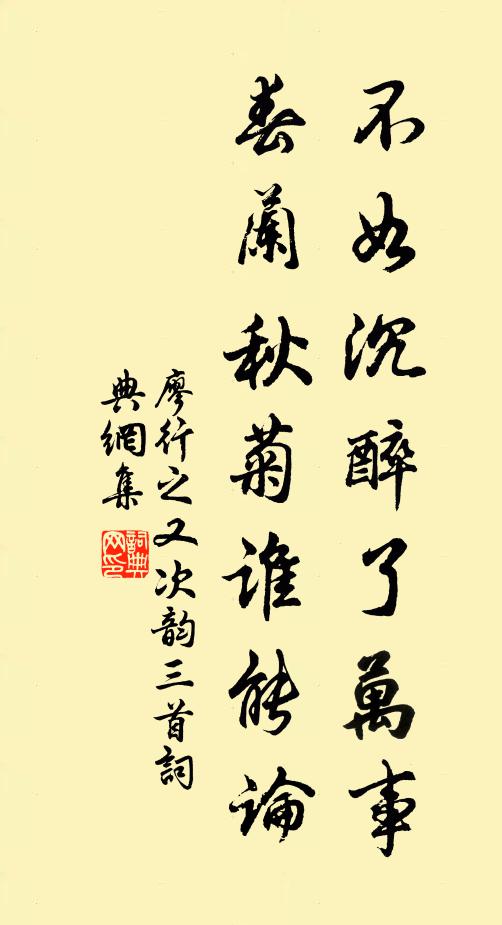 不如沉醉了萬事
春蘭秋菊誰能論
廖行之又次韵三首詞
典網集
詞典網印